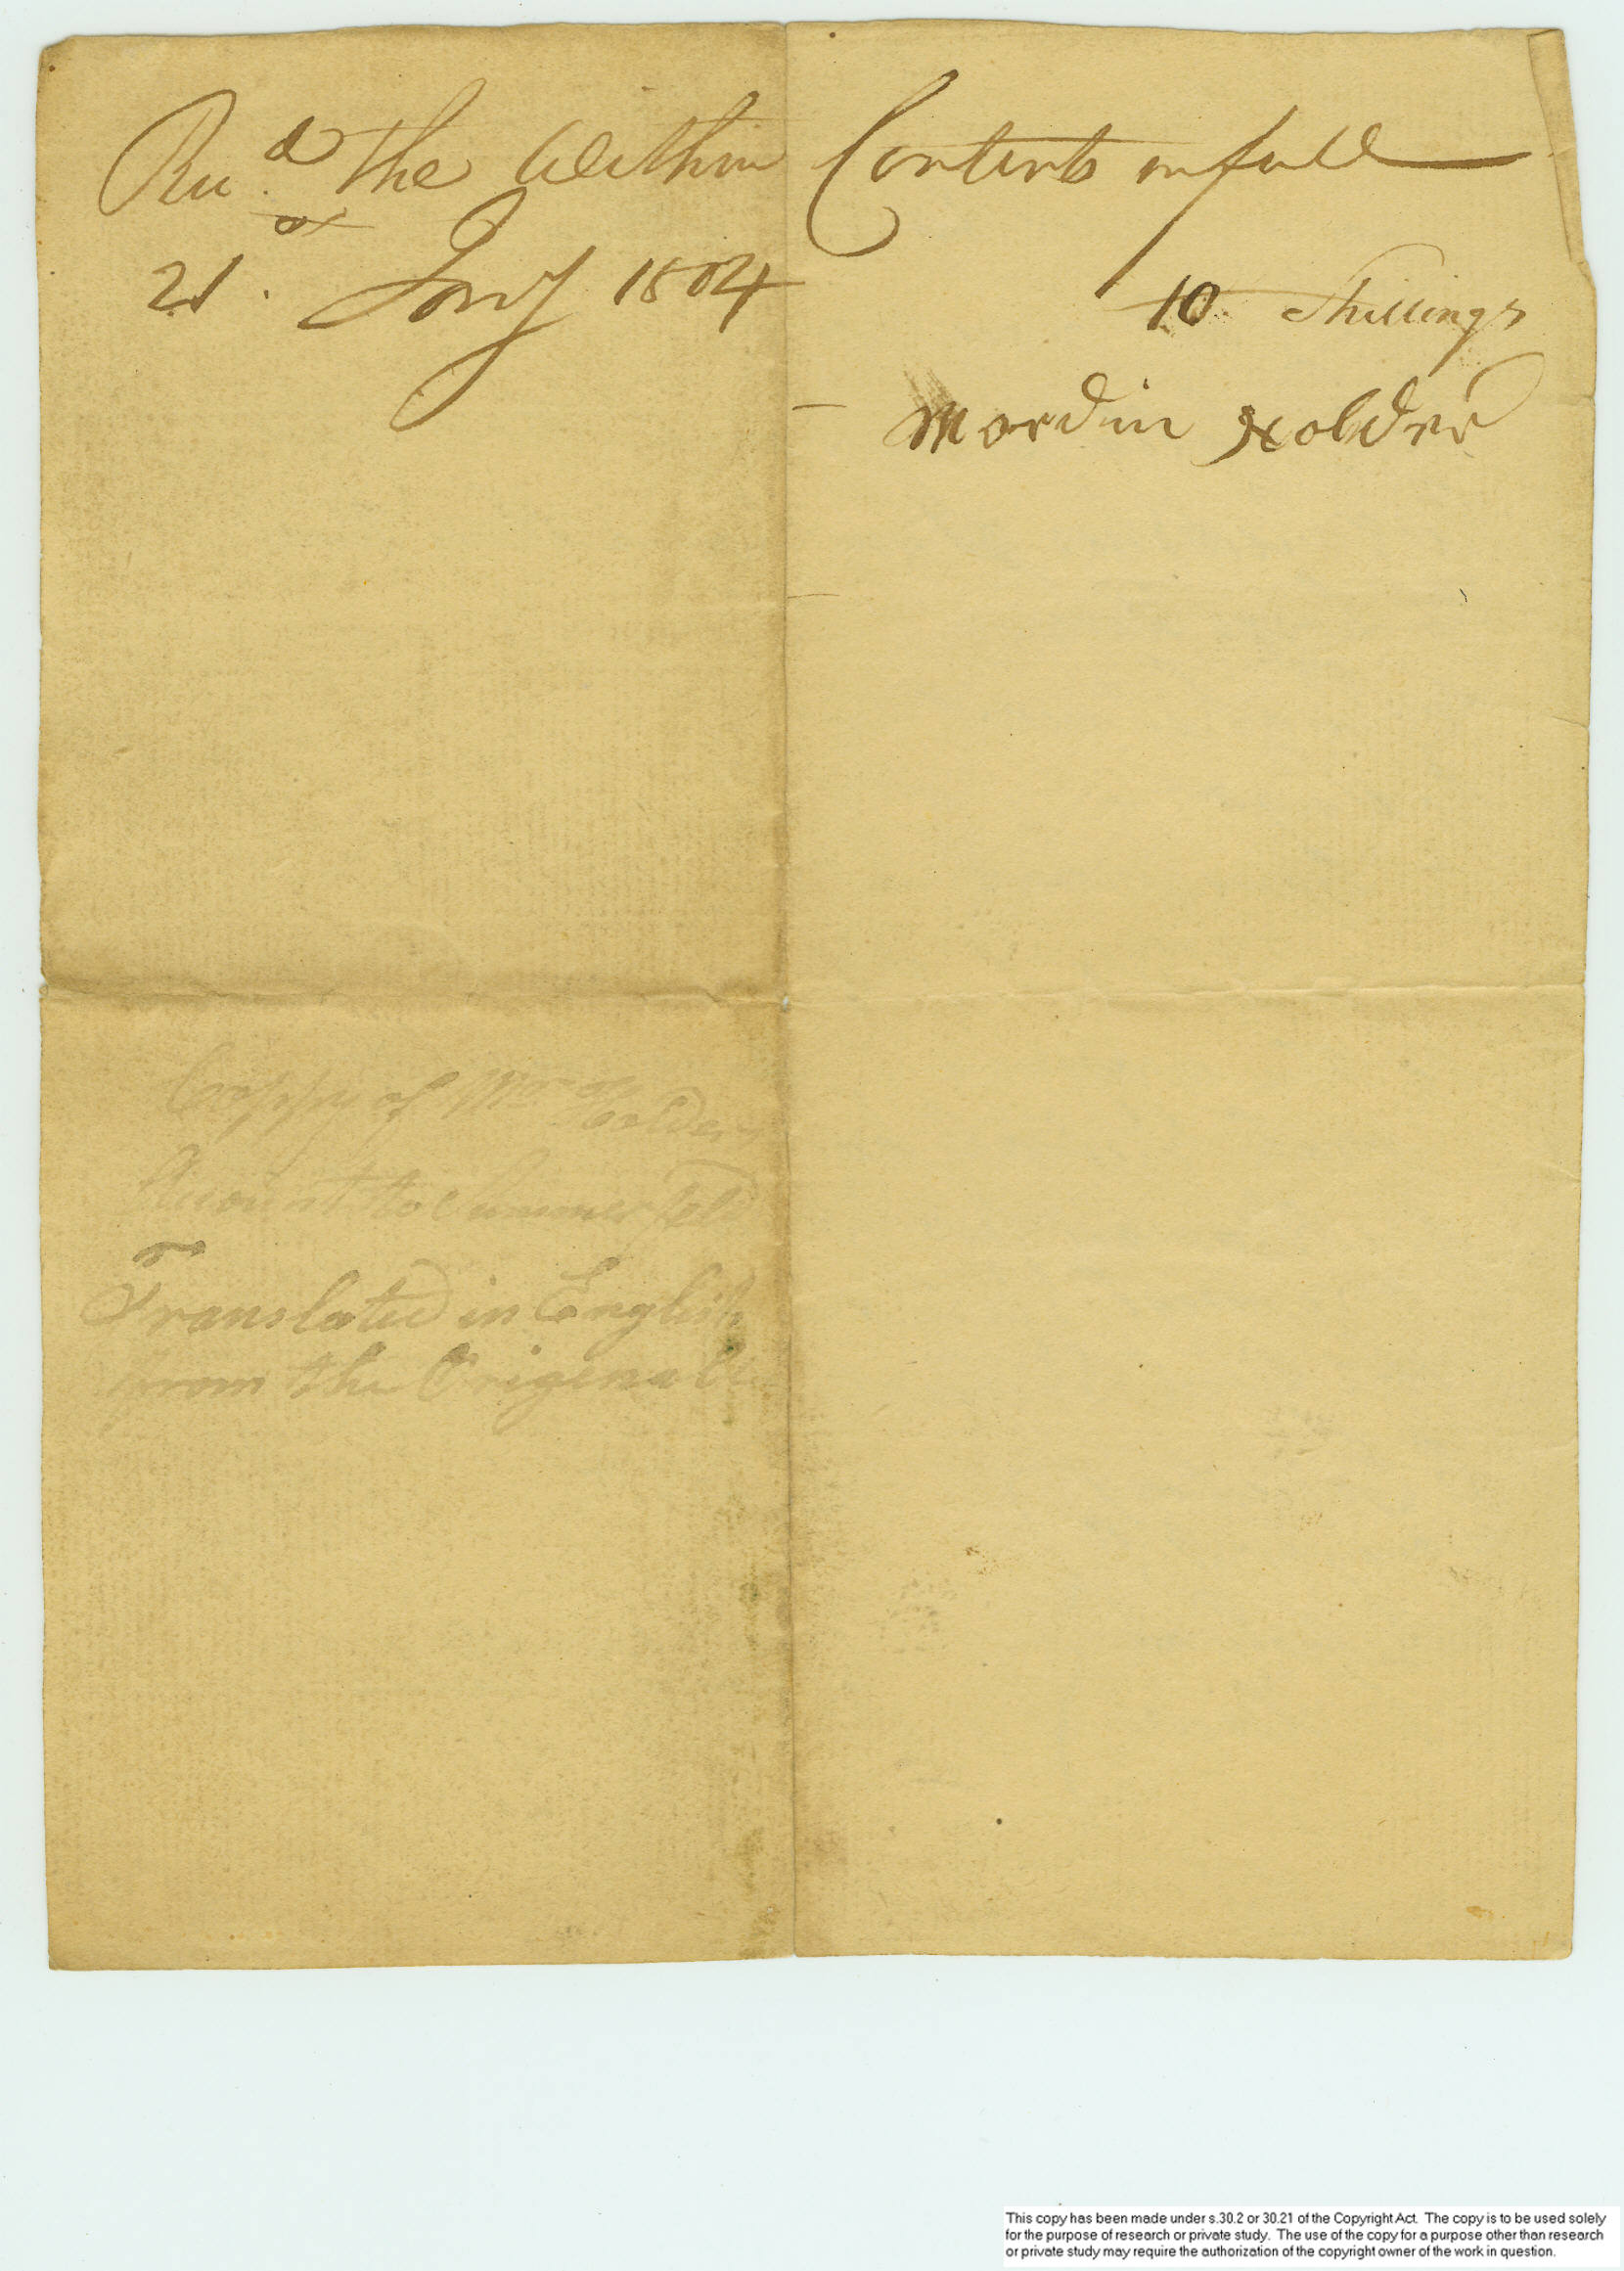 Recd. the Within Contents in full
21st. Jany 1804
10 Shillings
Mordin Holder
Coppy of Mr Holders
Account to Summerfeld
Translated in English
from the Origenall
This copy has been made under s.30.2 or 30.21 of the Copyright Act. The copy is to be used solely
for the purpose of research or private study. The use of the copy for a purpose other than research
or private study may require the authorization of the copyright owner of the work in question.